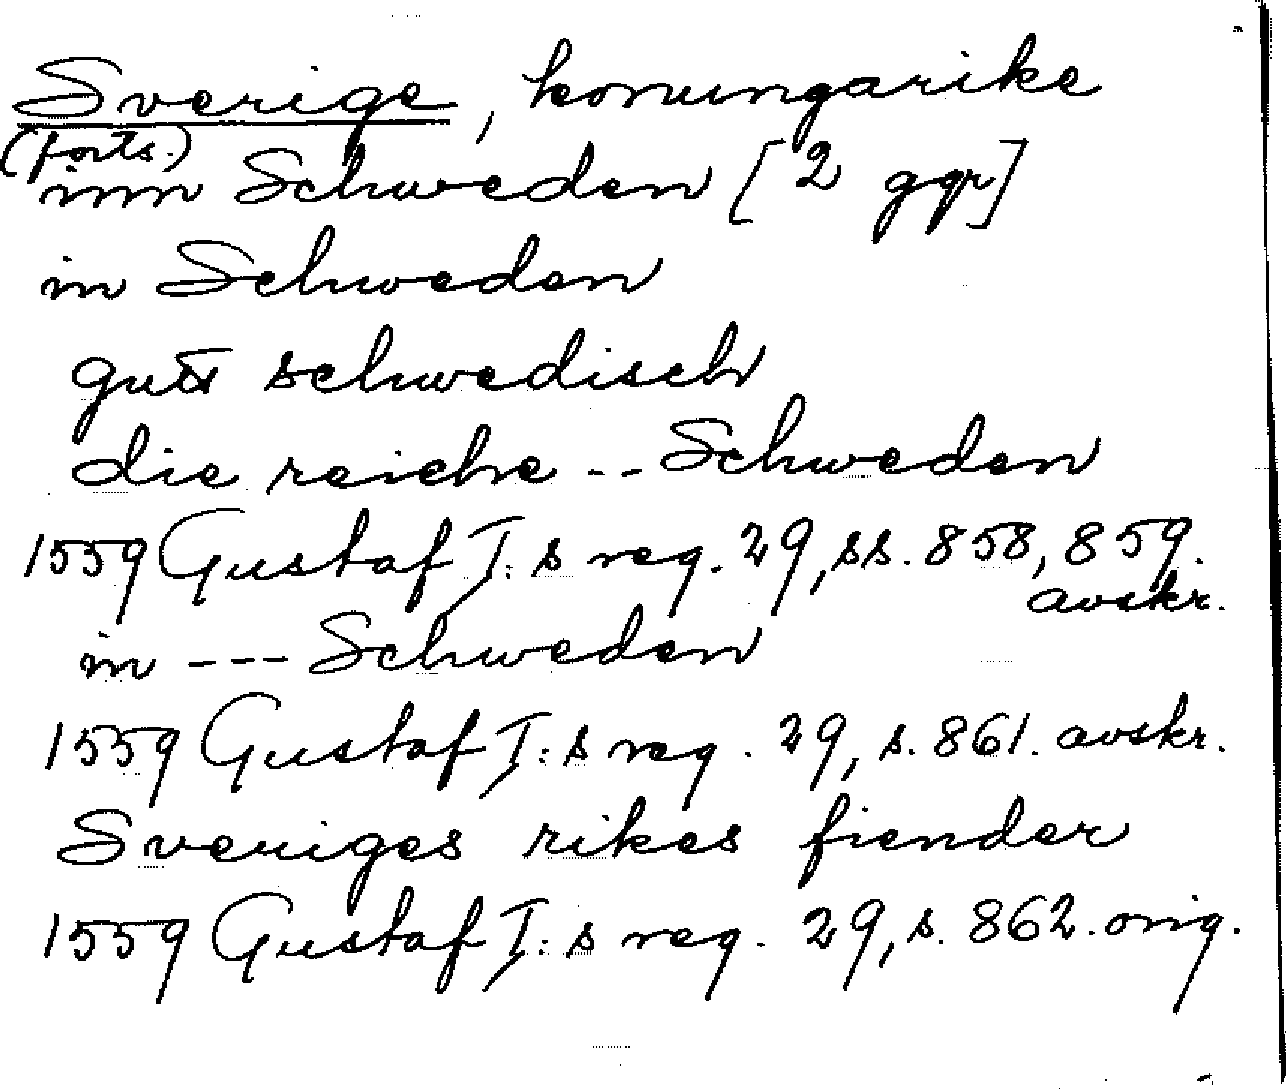 Sverige, konungarike
(forts.)
inn Schweden [2 ggr]
in Schweden
gutt schwedisch
die reiche -- Schweden
1559 Gustaf I:s reg. 29, ss. 858, 859.
avskr.
in --- Schweden
1559 Gustaf I:s reg. 29, s. 861. avskr.
Sveriges rikes fiender
1559 Gustaf I:s reg. 29, s. 862. orig.